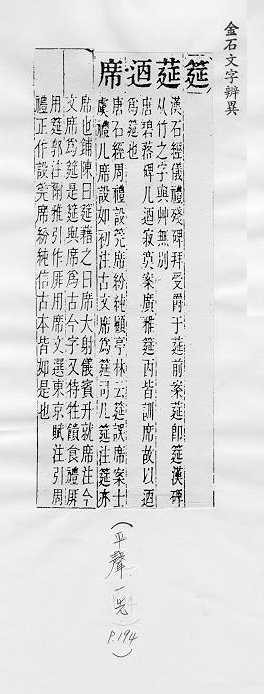 金石文字辨異
筵 莚 迺 席
漢石經儀禮殘碑拜受爵于莚前案莚即筵漢碑
从竹之字與艸無別
唐碧落碑儿迺寂莫案廣雅筵丙皆訓席故以迺
爲筵也
唐石經周禮設筦席紛純顧亭林云莚誤席案士
虞禮几席設如初注古文席爲筵司几筵注筵亦
席也鋪陳曰筵藉之曰席大射儀賓升就席注今
文席爲筵是筵與席爲古今字又特牲饋食禮厞
用筵郭注爾雅引作厞用席文選東京賦注引周
禮正作設筦席紛純信古本皆如是也
(平聲 一先
P.194)